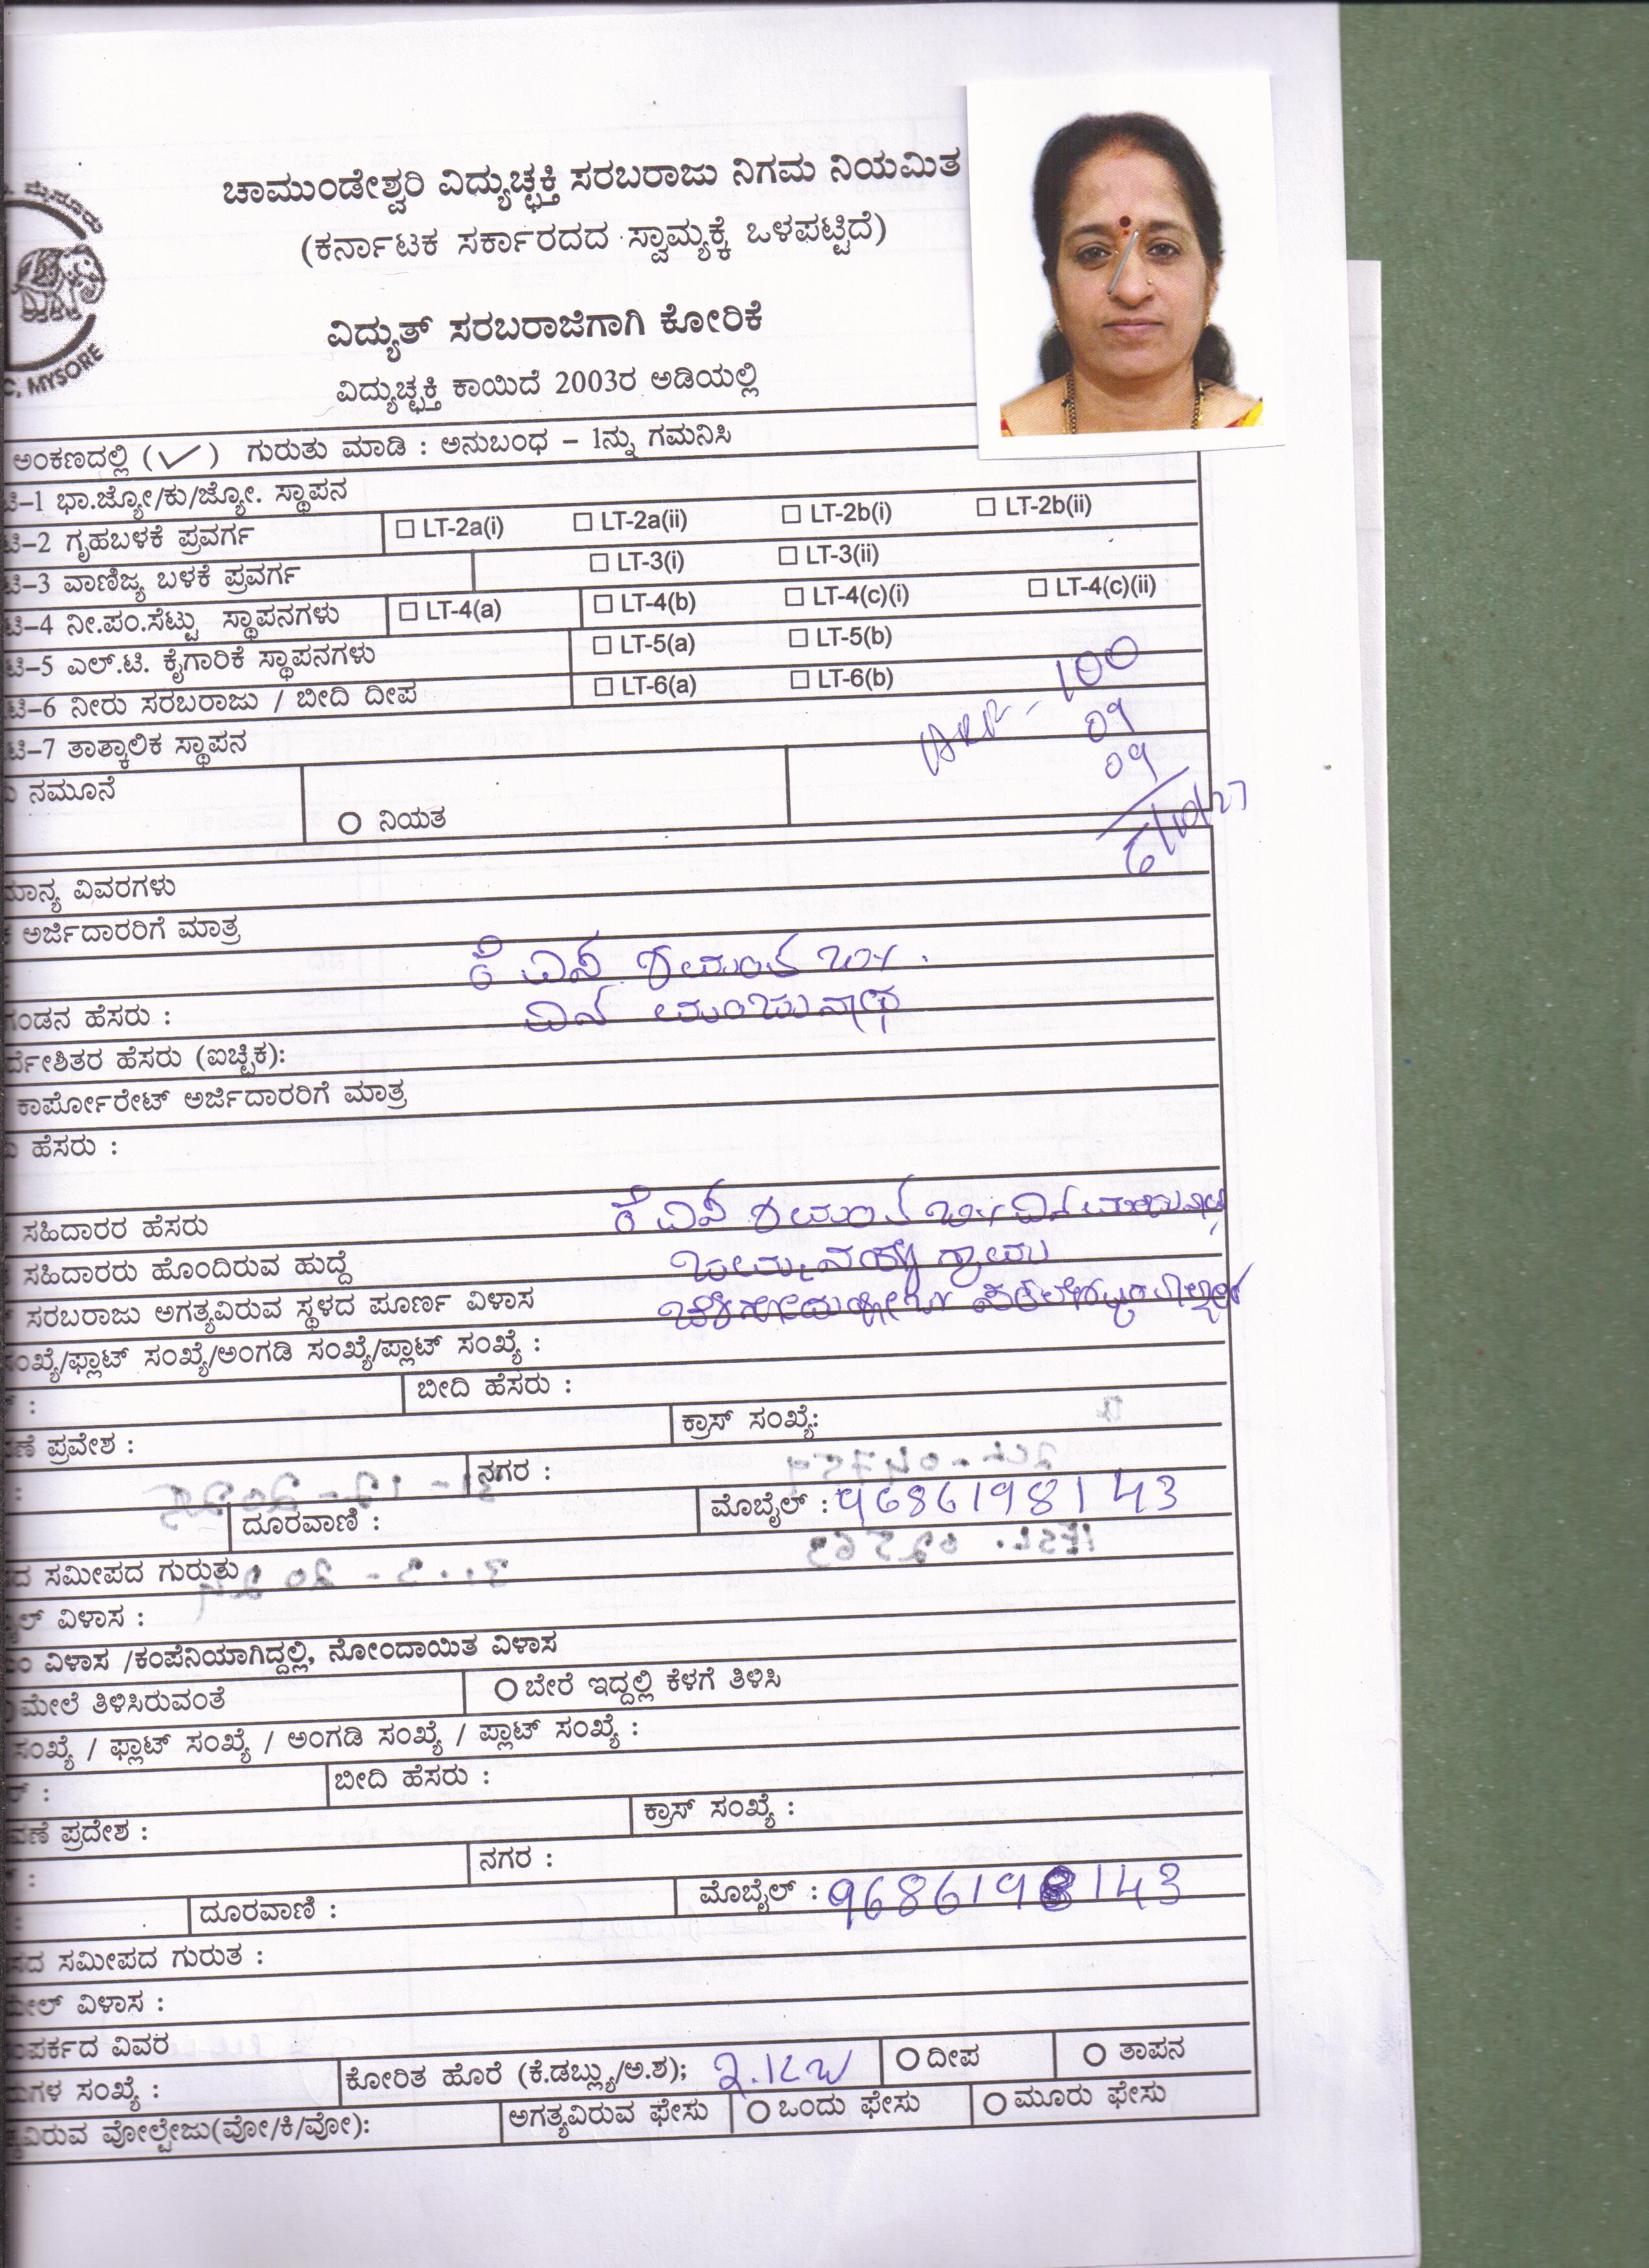 ಮೈಸೂರು
C, MYSORE
ಚಾಮುಂಡೇಶ್ವರಿ ವಿದ್ಯುಚ್ಛಕ್ತಿ ಸರಬರಾಜು ನಿಗಮ ನಿಯಮಿತ
(ಕರ್ನಾಟಕ ಸರ್ಕಾರದದ ಸ್ವಾಮ್ಯಕ್ಕೆ ಒಳಪಟ್ಟಿದೆ)
ವಿದ್ಯುತ್ ಸರಬರಾಜಿಗಾಗಿ ಕೋರಿಕೆ
ವಿದ್ಯುಚ್ಛಕ್ತಿ ಕಾಯಿದೆ 2003ರ ಅಡಿಯಲ್ಲಿ
ಅಂಕಣದಲ್ಲಿ (✓) ಗುರುತು ಮಾಡಿ : ಅನುಬಂಧ – 1ನ್ನು ಗಮನಿಸಿ
ಟಿ–1 ಭಾ.ಜ್ಯೋ/ಕು/ಜ್ಯೋ. ಸ್ಥಾಪನ
ಟಿ–2 ಗೃಹಬಳಕೆ ಪ್ರವರ್ಗ ☐ LT-2a(i) ☐ LT-2a(ii) ☐ LT-2b(i) ☐ LT-2b(ii)
ಟಿ–3 ವಾಣಿಜ್ಯ ಬಳಕೆ ಪ್ರವರ್ಗ ☐ LT-3(i) ☐ LT-3(ii)
ಟಿ–4 ನೀ.ಪಂ.ಸೆಟ್ಟು ಸ್ಥಾಪನಗಳು ☐ LT-4(a) ☐ LT-4(b) ☐ LT-4(c)(i) ☐ LT-4(c)(ii)
ಟಿ–5 ಎಲ್.ಟಿ. ಕೈಗಾರಿಕೆ ಸ್ಥಾಪನಗಳು ☐ LT-5(a) ☐ LT-5(b)
ಟಿ–6 ನೀರು ಸರಬರಾಜು / ಬೀದಿ ದೀಪ ☐ LT-6(a) ☐ LT-6(b)
100
ಟಿ–7 ತಾತ್ಕಾಲಿಕ ಸ್ಥಾಪನ
09
09
ನಮೂನೆ
○ ನಿಯತ
ಮಾನ್ಯ ವಿವರಗಳು
ಅರ್ಜಿದಾರರಿಗೆ ಮಾತ್ರ
ಕೆ ಎಸ್
ಗಂಡನ ಹೆಸರು : ಎನ್ ಮಂಜುನಾಥ
ರ್ದೇಶಿತರ ಹೆಸರು (ಐಚ್ಛಿಕ):
ಕಾರ್ಪೋರೇಟ್ ಅರ್ಜಿದಾರರಿಗೆ ಮಾತ್ರ
ಹೆಸರು :
ಸಹಿದಾರರ ಹೆಸರು ಕೆ ಎಸ್
ಸಹಿದಾರರು ಹೊಂದಿರುವ ಹುದ್ದೆ ಗ್ರಾಮ
ಸರಬರಾಜು ಅಗತ್ಯವಿರುವ ಸ್ಥಳದ ಪೂರ್ಣ ವಿಳಾಸ
ಸಂಖ್ಯೆ/ಫ್ಲಾಟ್ ಸಂಖ್ಯೆ/ಅಂಗಡಿ ಸಂಖ್ಯೆ/ಪ್ಲಾಟ್ ಸಂಖ್ಯೆ :
ಬೀದಿ ಹೆಸರು :
ವಣೆ ಪ್ರವೇಶ : ಕ್ರಾಸ್ ಸಂಖ್ಯೆ:
ನಗರ :
ದೂರವಾಣಿ : ಮೊಬೈಲ್ : 9686198143
ದ ಸಮೀಪದ ಗುರುತು :
ಲ್ ವಿಳಾಸ :
ವಿಳಾಸ /ಕಂಪೆನಿಯಾಗಿದ್ದಲ್ಲಿ, ನೋಂದಾಯಿತ ವಿಳಾಸ
ಮೇಲೆ ತಿಳಿಸಿರುವಂತೆ ○ ಬೇರೆ ಇದ್ದಲ್ಲಿ ಕೆಳಗೆ ತಿಳಿಸಿ
ಸಂಖ್ಯೆ / ಫ್ಲಾಟ್ ಸಂಖ್ಯೆ / ಅಂಗಡಿ ಸಂಖ್ಯೆ / ಪ್ಲಾಟ್ ಸಂಖ್ಯೆ :
ಬೀದಿ ಹೆಸರು :
ವಣೆ ಪ್ರದೇಶ : ಕ್ರಾಸ್ ಸಂಖ್ಯೆ :
ನಗರ :
ದೂರವಾಣಿ : ಮೊಬೈಲ್ : 9686198143
ಸದ ಸಮೀಪದ ಗುರುತ :
ಮೇಲ್ ವಿಳಾಸ :
ಂಪರ್ಕದ ವಿವರ
ಗಳ ಸಂಖ್ಯೆ : ಕೋರಿತ ಹೊರೆ (ಕೆ.ಡಬ್ಲ್ಯು/ಅ.ಶ); ○ ದೀಪ ○ ತಾಪನ
ವಿರುವ ವೋಲ್ಟೇಜು(ವೋ/ಕಿ/ವೋ): ಅಗತ್ಯವಿರುವ ಫೇಸು ○ ಒಂದು ಫೇಸು ○ ಮೂರು ಫೇಸು